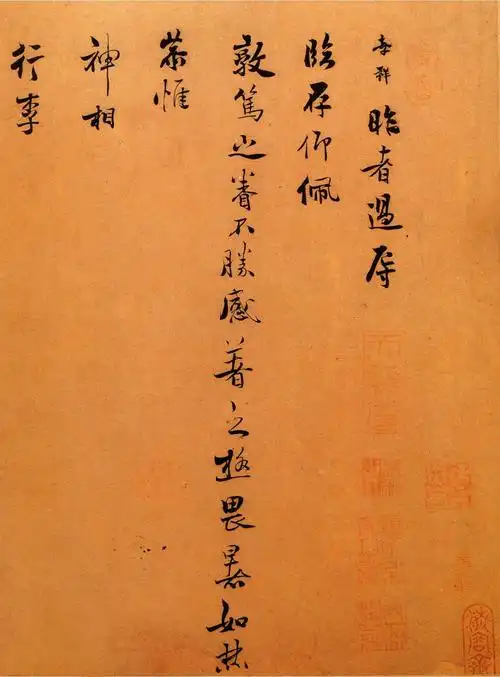 孝祥 昨者過辱
臨存仰佩
敦篤之眷不勝感著之極畏暑如焚
恭惟
神相
行李